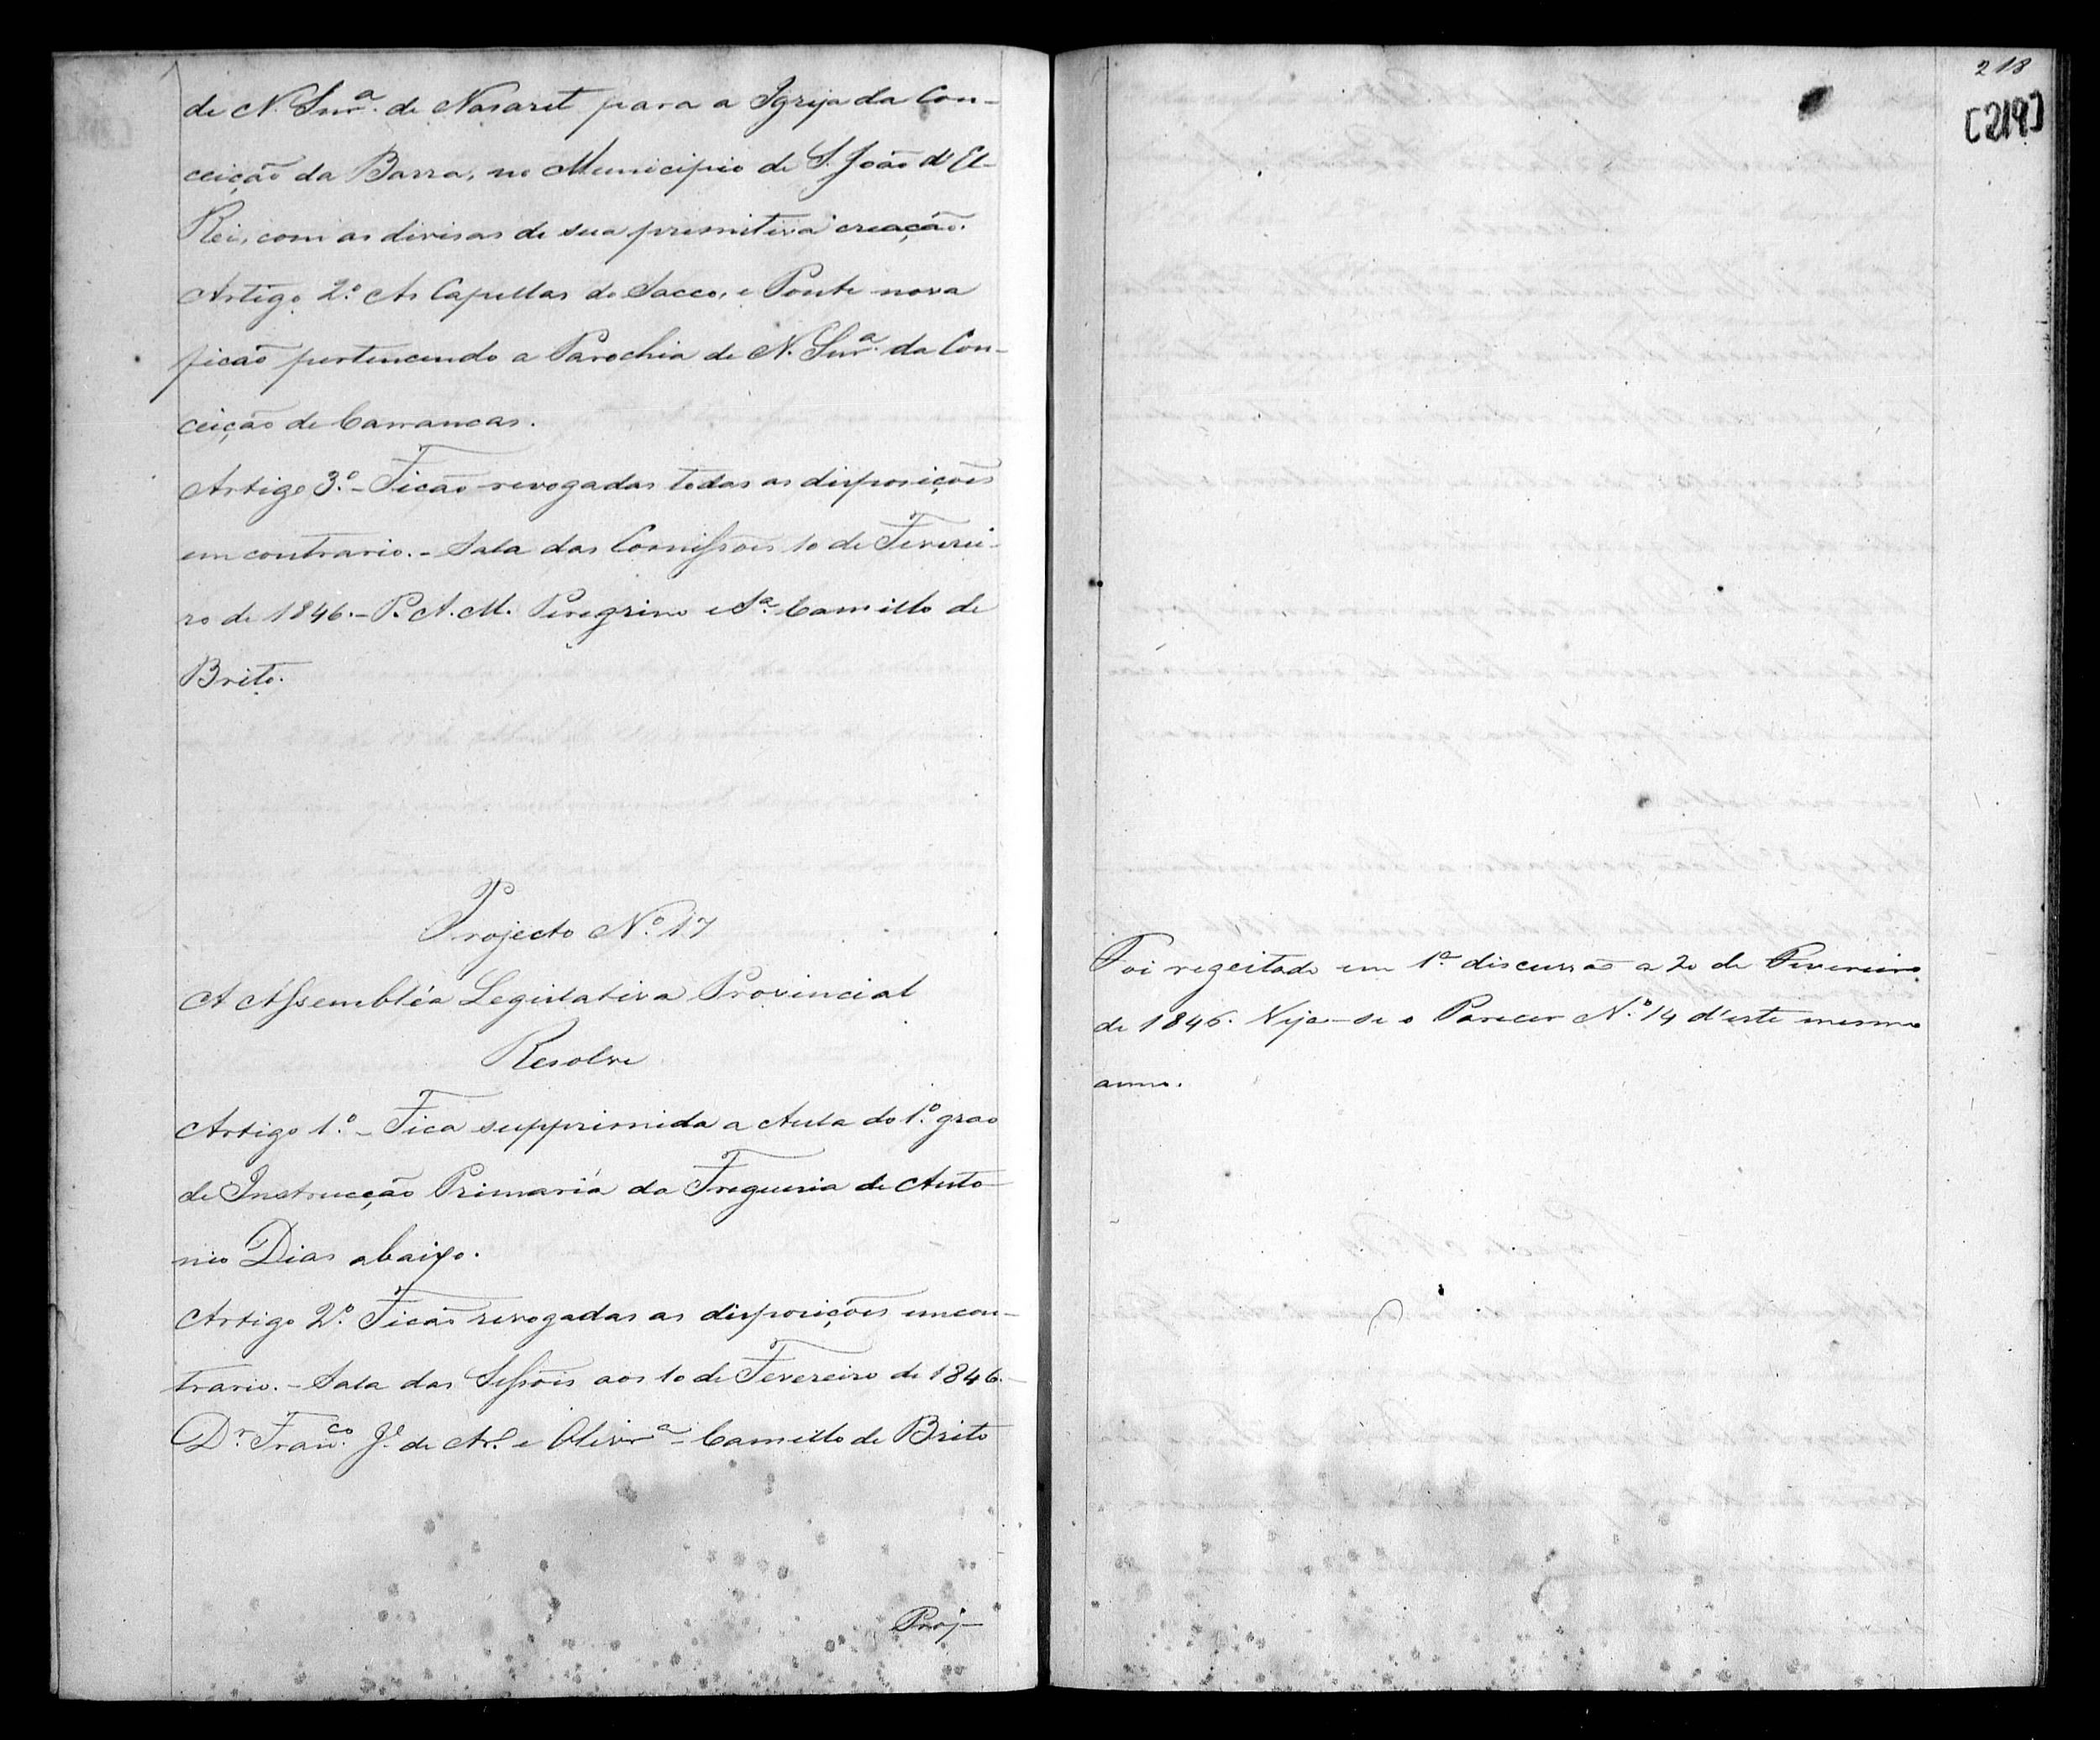 de N. Snr.ª de Nasaret para a Igreja da Con-
ceição da Barra, no Municipio de S. João d'El-
Rei, com as divisas de sua premitiva creação.
Artigo 2.º As Capellas do Sacco, e Ponte nova
ficão pertencendo a Parochia de N. Snr.ª da Con-
ceição de Carrancas.
Artigo 3.º - Ficão revogadas todas as disposições
em contrario. - Sala das Comissões 10 de Feverei-
ro de 1846. - P. A. M. Peregrino e S.ª Camillo de
Brito.
Projecto N.º 17
A Assembléa Legislativa Provincial
Resolve
Artigo 1.º - Fica supprimida a Aula do 1.º grao
de Instrucção Primaria da Freguesia de Anto-
nio Dias abaixo.
Artigo 2.º Ficão revogadas as disposições em con-
trario. - Sala das Sessões aos 10 de Fevereiro de 1846.-
Dr. Fran.co J.e de Ar.º e Olivr.ª - Camillo de Brito
Proj-
218
[219]
Foi regeitado em 1.ª discussão a 20 de Fevereiro
de 1846. Veja-se o Parecer N.º 14 d'este mesmo
anno.